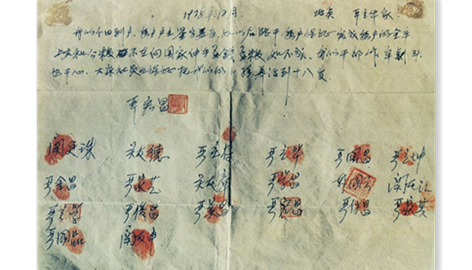 1978年12月 地点 严立华家
我们分田到户每户户主签字盖章如以后能干每户保证完成每户的全年
上交和公粮不在向国家伸手要钱要粮如不成我们干部作牢刹头
也干心大家社员也保证把我们的小孩养活到十八岁
严宏昌
关廷珠 关友德 严立符 严立华 严国昌 严立坤
严金昌 严家芝 关友章 严学昌 韩国云 关友江
严立学 严俊昌 严美昌 严宏昌 严付昌
严国品 关友申